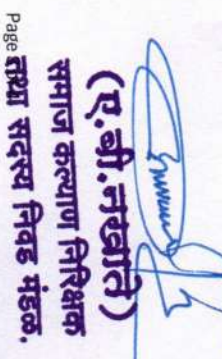 (ए.बी.नखाते)
समाज कल्याण निरिक्षक
तथा सदस्य निवड मंडळ.
Page